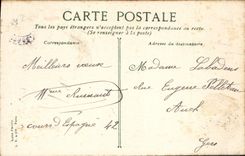 CARTE POSTALE
Tous les pays étrangers n'acceptent pas la correspondance au recto.
(Se renseigner à la poste)
Correspondance
Adresse du destinataire
Meilleurs vœux
Mme
cours d'Espagne 42
Madame
Rue Eugène Pelletan
Auch
Gers